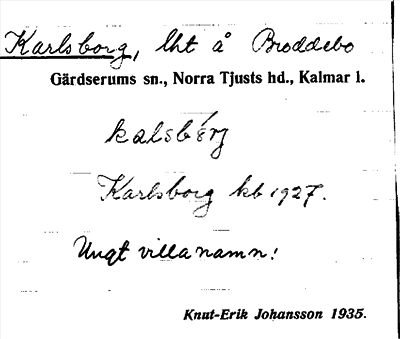 Karlsborg, lht å Broddebo
Gärdserums sn., Norra Tjusts hd., Kalmar l.
kalsbérj
Karlsborg kb 1927.
Ungt villanamn!
Knut-Erik Johansson 1935.